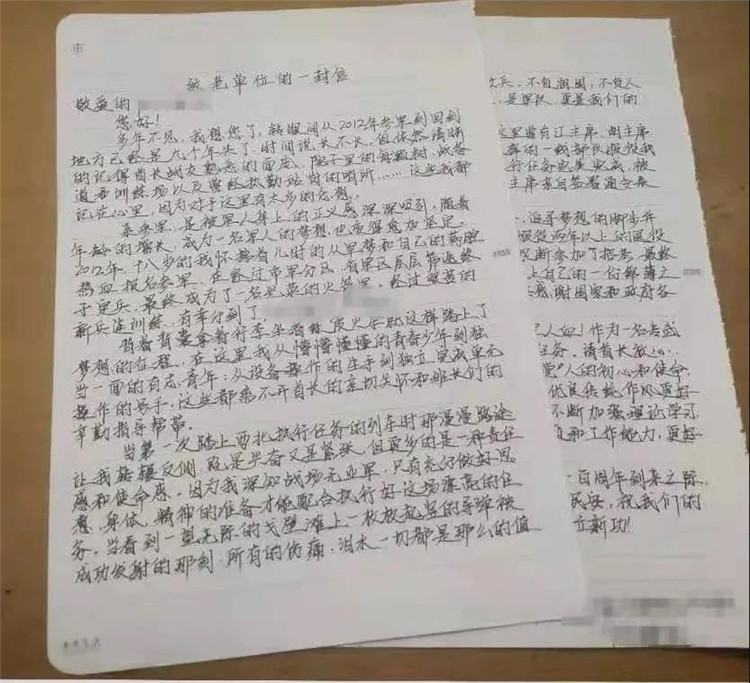 致老单位的一封信
敬爱的
您好!
多年不见,我想您了,转眼间从2012年参军到回到
地方已经是九个年头了,时间说长不长,但依然清晰
的记得首长战友熟悉的面庞、院子里的每颗树,战备
道西训练场以及曾经执勤站岗的哨所……这些我都
记在心里,因为对于这里有太多的念想。
来参军,是被军人身上的正义感深深吸引,随着
年龄的增长,成为一名军人的梦想也变得愈加坚定。
2012年,十八岁的我怀揣着儿时的从军梦和自己的满腔
热血报名参军,在经过市军分区、省军区层层筛选终
于定兵,最终成为了一名光荣的火箭军,经过艰苦的
新兵连训练,有幸分到了
背着背囊拿着行李坐着绿皮火车就这样踏上了
梦想的征程,在这里我从懵懵懂懂的青春少年到独
当一面的有志青年,从设备操作的生手到独立完成单元
操作的号手,这些都离不开首长的亲切关怀和班长们的
辛勤指导帮带。
当第一次踏上西北执行任务的列车时那漫漫路途
让我辗转反侧,既是兴奋又是紧张,但更多的是一种责任
感和使命感,因为我深知战场无亚军,只有充分做好思
想、身体、精神的准备才能配合执行好这场漂亮的任
务,当看到一望无际的戈壁滩上一枚枚托举的导弹被
成功发射的那刻,所有的伤痛、泪水一切都是那么的值
兵,不负祖国,不负人
,是军队,更是我们的
这里曾有江主席、胡主席
的一线部队服役我
行任务完美完成,被
主席亲自签署通令嘉
,追寻梦想的脚步并
服役两年以上的退役
果断参加了招录,最终
上自己的一份绵薄之
感谢国家和政府各
作为一名专武
任务,请首长放心,
人的初心和使命,
优良传统作风更好
不断加强理论学习
和工作能力,更好
百周年到来之际
民安,祝我们的
立新功!